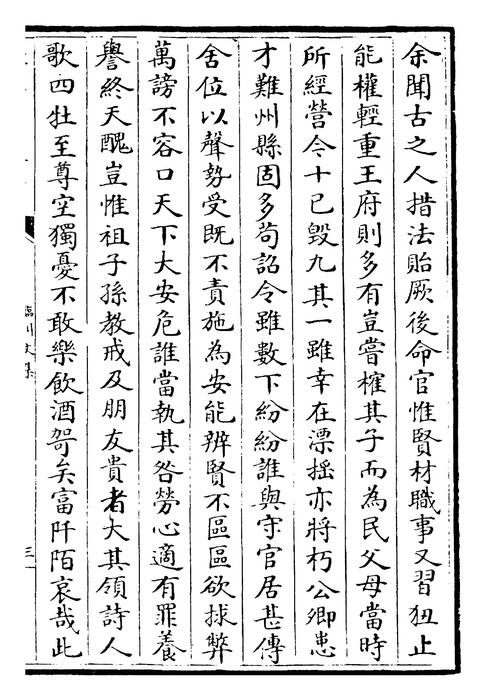 余聞古之人措法貽厥後命官惟賢材職事又習狃止
能權輕重王府則多有豈嘗榷其子而為民父母當時
所經營今十已毀九其一雖幸在漂搖亦將朽公卿患
才難州縣固多苟詔令雖數下紛紛誰與守官居甚傳
舍位以聲勢受既不責施為安能辨賢不區區欲捄弊
萬謗不容口天下大安危誰當執其咎勞心適有罪養
譽終天醜豈惟祖子孫教戒及朋友貴者大其領詩人
歌四牡至尊空獨憂不敢樂飲酒哿矣富阡陌哀哉此
臨川文集
三